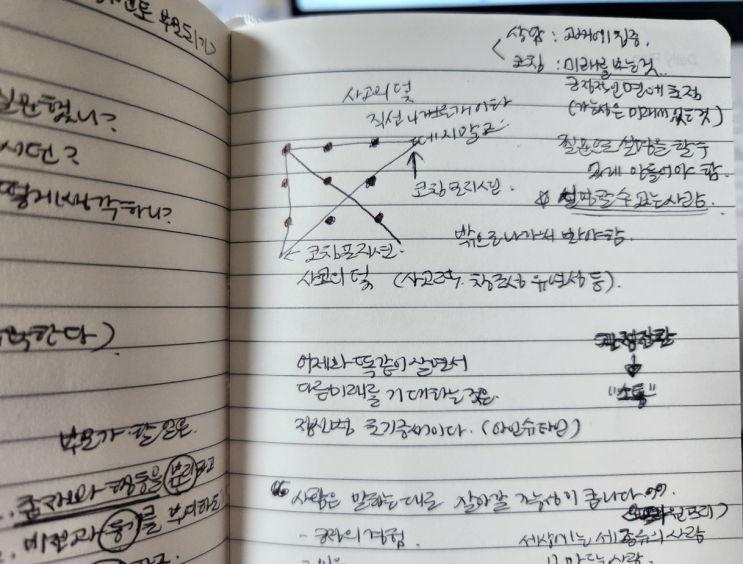 부모되기>
했니?
시던?
떻게 생각하니?
한다)
부모가 할 일은
존재와 행동을 분리하고
비전과 용기를 부여하는
상담 : 과거에 집중.
코칭 : 미래를 보는것.
긍정적인 면에 초점
(가능성은 미래에 있는 것)
사고의 덫
직선 4개로
떼지말고
코칭포지션.
질문으로 설명을 할 수
있게 만들어야 함.
☆ 설명할 수 있는 사람.
밖으로 나가서 봐야함.
코칭포지션
사고의 덫 (사고력, 창조성 유연성 등).
어제와 똑같이 살면서
다른미래를 기대하는 것은
정신병 초기증세이다. (아인슈타인)
관점전환
↓
"소통"
"사람은 말하는대로 살아갈 가능성이 큽니다"
- 경험
세상에는 세 종류의 사람
만드는 사람